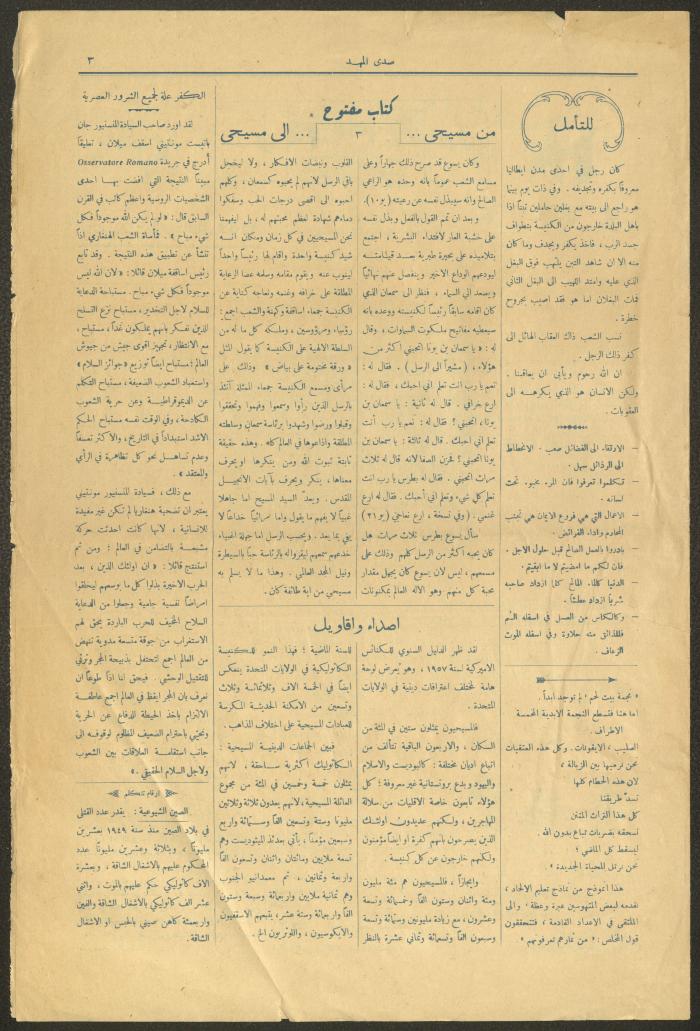 صدى المهد
٣
للتأمل
كان رجل في احدى مدن ايطاليا
معروفاً بكفره وتجديفه . وفي ذات يوم بينما
هو راجع الى بيته مع بغلين حاملين تبناً اذا
باهل البلدة خارجون من الكنيسة بتطواف
جسد الرب ، فاخذ يكفر ويجدف وما كان
منه الا ان شاهد التبن يلتهب فوق البغل
الذي عليه وامتد اللهيب الى البغل الثاني
فمات البغلان اما هو فقد اصيب بجروح
خطرة .
نسب الشعب ذاك العقاب الهائل الى
كفر ذلك الرجل .
ان الله رحوم ويأبى ان يعاقبنا .
ولكن الانسان هو الذي يكرهه الى
العقوبات .
— الارتقاء الى الفضائل صعب . الانحطاط
الى الرذائل سهل .
— تكلموا تعرفوا فان المرء مخبوء تحت
لسانه .
— الاعمال التي هي فروع الايمان هي تجنب
المحارم واداء الفرائض .
— بادروا بالعمل الصالح قبل حلول الاجل .
فان لكم ما امضيتم لا ما ابقيتم .
— الدنيا كالماء المالح كلما ازداد صاحبه
شرباً ازداد عطشاً .
— وكالكأس من العسل في اسفله السم
فللذائق منه حلاوة وفي اسفله الموت
الزعاف .
« نجمة بيت لحم ! لم توجد ابداً .
اما هنا فتسطع النجمة الابدية المخمسة
الاطراف .
الصليب ، الايقونات . وكل هذه العتيقات
نحن نرميها بين الزبالة ،
لان هذه الحطام كلها
تسد طريقنا
كل هذا التراث المنتن
نسحقه بضربات اتباع بدون الله .
ليسقط كل الماضي !
نحن نرتل للحياة الجديدة »
هذا انموذج من نماذج تعليم الالحاد ،
نقدمه لبعض المتهوسين عبرة وعظة ! والى
الملتقى في الاعداد القادمة ، فتتحققون
قول المخلص : « من ثمارهم تعرفونهم »
كتاب مفتوح
من مسيحي ... ٣ ... الى مسيحي
وكان يسوع قد صرح ذلك جهاراً وعلى
مسامع الشعب عموماً بانه وحده هو الراعي
الصالح وانه سيبذل نفسه عن رعيته ( يو ١٠ ) .
وبعد ان تمم القول بالفعل وبذل نفسه
على خشبة العار لافتداء البشرية ، اجتمع
بتلاميذه على بحيرة طبرية بعد قيامته
ليودعهم الوداع الاخير وينفصل عنهم نهائياً
ويصعد الى السماء ، فنظر الى سمعان الذي
كان اقامه سابقاً رئيساً لكنيسته ووعده بانه
سيعطيه مفاتيح ملكوت السماوات ، وقال
له : « يا سمعان بن يونا اتحبني اكثر من
هؤلاء ، ( مشيراً الى الرسل ) . فقال له :
نعم يا رب انت تعلم اني احبك ، فقال له :
ارع خرافي . قال له ثانية : يا سمعان بن
يونا ، اتحبني ؟ فقال له : نعم يا رب ، أنت
تعلم اني احبك . قال له ثالثة : يا سمعان بن
يونا اتحبني ؟ فحزن الصفا لانه قال له ثلاث
مرات اتحبني . فقال له بطرس يا رب انت
تعلم كل شيء وتعلم اني أحبك . فقال له ارع
غنمي . ( وفي نسخة ، ارع نعاجي ( يو ٢١ )
سأل يسوع بطرس ثلاث مرات هل
كان يحبه اكثر من الرسل كلهم وذلك على
مسمعهم ، ليس لان يسوع كان يجهل مقدار
محبة كل منهم وهو الاله العالم بمكنونات
القلوب ونبضات الافكار ، ولا ليخجل
باقي الرسل لانهم لم يحبوه كسمعان ، وكلهم
احبوه الى اقصى درجات الحب وسفكوا
دماءهم شهادة لعظم محبتهم له ، بل ليفهمنا
نحن المسيحيين في كل زمان ومكان انه
شيد كنيسة واحدة واقام لها رئيساً واحداً
لينوب عنه ويقوم مقامه وسلمه عصا الرعاية
المطلقة على خرافه وغنمه ونعاجه كناية عن
الكنيسة جمعاء اساقفة وكهنة والشعب اجمع :
رؤساء ومرؤوسين ، وملكه كل ما له من
السلطة الالهية على الكنيسة كما يقول المثل
« ورقة مختومة على بياض » وذلك على
مرأى ومسمع الكنيسة جمعاء الممثلة آنئذ
بالرسل الذين رأوا وسمعوا وفهموا وتحققوا
وقبلوا ورضوا وشهدوا برئاسة سمعان وسلطته
المطلقة واذاعوها في العالم كله . وهذه حقيقة
ثابتة ثبوت الله ومن ينكرها او يحرف
معناها ، ينكر ويحرف بآيات الانجيل
المقدس . ويعدّ السيد المسيح اما جاهلا
غبياً لا يفهم ما يقول واما مرائياً خداعاً لا
يفي بما يعد . ويحسب الرسل اما جهلة اغبياء
خدعهم سمعهم ليقروا له بالرئاسة حباً بالسيطرة
ونيل المجد العالمي . وهذا ما لا يسلم به
مسيحي من اية طائفة كان .
اصداء واقاويل
لقد ظهر الدليل السنوي للكنائس
الاميركية لسنة ١٩٥٧ ، وهو يعرض لوحة
هامة لمختلف اعترافات دينية في الولايات
المتحدة .
فالمسيحيون يمثلون ستين في المئة من
السكان ، والاربعون الباقية تتألف من
اتباع اديان مختلفة : كالبوذيست والاسلام
واليهود وبدع بروتستانية غير معروفة ؛ كل
هؤلاء تابعون خاصة الاقليات من سلالة
المهاجرين ، ولكنهم عديدون اولئك
الذين يصرحون بانهم كفرة او ايضاً مؤمنون
ولكنهم خارجون عن كل كنيسة .
وايجازاً ، فالمسيحيون هم مئة مليون
ومئة واثنان وستون الفاً وخمسمائة وتسعة
وعشرون ، مع زيادة مليونين وستمائة وتسعة
وسبعون الفاً وتسعمائة وثماني عشرة بالنظر
للسنة الماضية ؛ فهذا النمو للكنيسة
الكاثوليكية في الولايات المتحدة ينعكس
ايضاً في الخمسة الاف وثلاثمائة وثلاث
وتسعين من الامكنة الحديثة المكرسة
للعبادات المسيحية على اختلاف المذاهب .
فبين الجماعات الدينية المسيحية :
الكاثوليك اكثرية ساحقة ، لانهم
يمثلون خمسة وخمسين في المئة من مجموع
العائلة المسيحية ، لانهم يعدون ثلاثة وثلاثين
مليوناً وستة وتسعين الفاً وستمائة واربع
وسبعين مؤمناً ، يأتي بعدئذ الميثوديست وهم
تسعة ملايين ومائتان واثنان وتسعون الفاً
واربعة وثمانين ، ثم معمدانيو الجنوب
وهم ثمانية ملايين واربعمائة وسبعة وستون
الفاً واربعمائة وستة عشر ، يتبعهم الاسقفيون
والايكوسيون ، واللوثريون الخ .
الكفر علة لجميع الشرور العصرية
لقد اورد صاحب السيادة المنسنيور جان
باتيست مونتيني اسقف ميلان ، تعليقاً
أدرج في جريدة Osservatore Romano
مبيناً النتيجة التي افضت بها احدى
الشخصيات الروسية واعظم كاتب في القرن
السابق قال : « لو لم يكن الله موجوداً فكل
شيء مباح » . فمأساة الشعب الهنغاري اذاً
تنشأ عن تطبيق هذه النتيجة . وقد تابع
رئيس اساقفة ميلان قائلا : « لان الله ليس
موجوداً فكل شيء مباح . مستباحة الدعاية
للسلام لاجل التخدير ، مستباح نزع التسلح
الذين نفكر بانهم يملكون غداً ، مستباح ،
مع الانتظار ، تجهيز اقوى جيش من جيوش
العالم ؛ مستباح ايضاً توزيع « جوائز السلام »
واستعباد الشعوب الضعيفة ، مستباح التكلم
عن الديموقراطية وعن حرية الشعوب
الكادحة ، وفي الوقت نفسه مستباح الحكم
الاشد استبداداً في التاريخ ، والاكثر تعسفاً
وعدم تساهل نحو كل تظاهرية في الرأي
والمعتقد » .
مع ذلك ، فسيادة المنسنيور مونتيني
يعتبر ان تضحية هنغاريا لم تكن غير مفيدة
للانسانية ، لانها كانت احدثت حركة
مشبعة بالتضامن في العالم ؛ ومن ثم
استنتج قائلا : « ان اولئك الذين ، بعد
الحرب الاخيرة بذلوا كل ما بوسعهم ليخلقوا
امراضاً نفسية جامية وجعلوا من الدعاية
السلاح المخيف للحرب الباردة يحق لهم
الاستغراب من جوقة متسعة مدوية تنهض
من العالم اجمع لتحتفل بذبيحة المجر وترثي
للتقتيل الوحشي . فيحق لنا اذاً طوعاً ان
نعرف بان المجر ايقظ في العالم اجمع عاطفة
الالتزام باخذ الحيطة للدفاع عن الحرية
وتحيتي باحترام الضعيف المظلوم لوقوفه الى
جانب استقامة العلاقات بين الشعوب
ولاجل السلام الحقيقي . »
ارقام تتكلم
الصين الشيوعية : يقدر عدد القتلى
في بلاد الصين منذ سنة ١٩٤٩ بعشرين
مليوناً ، وبثلاثة وعشرين مليوناً عدد
المحكوم عليهم بالاشغال الشاقة ، وبعشرة
الاف كاثوليكي حكم عليهم بالموت ، واثني
عشر الف كاثوليكي بالاشغال الشاقة والفين
واربعمئة كاهن صيني بالحبس او الاشغال
الشاقة .